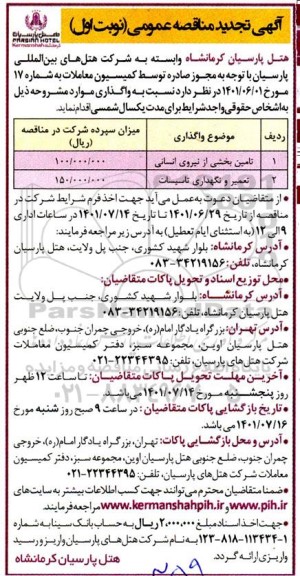 آگهی تجدید مناقصه عمومی (نوبت اول)
PARSIAN HOTEL
Kermanshah
هتل پارسیان کرمانشاه وابسته به شرکت هتل‌های بین‌المللی
پارسیان با توجه به مجوز صادره توسط کمیسیون معاملات به شماره ۱۷
مورخ ۱۴۰۱/۰۶/۰۱ در نظر دارد نسبت به واگذاری موارد مشروحه ذیل
به اشخاص حقوقی واجد شرایط برای مدت یکسال شمسی اقدام نماید.
ردیف موضوع واگذاری میزان سپرده شرکت در مناقصه (ریال)
۱ تامین بخشی از نیروی انسانی ۱۰۰/۰۰۰/۰۰۰
۲ تعمیر و نگهداری تاسیسات ۱۵۰/۰۰۰/۰۰۰
از متقاضیان دعوت به‌عمل می‌آید جهت اخذ فرم شرایط شرکت در
مناقصه از تاریخ ۱۴۰۱/۰۶/۲۹ تا تاریخ ۱۴۰۱/۰۷/۱۴ در ساعات اداری
۹ الی ۱۲ (به استثنای ایام تعطیل) به آدرس زیر مراجعه فرمایند:
آدرس کرمانشاه: بلوار شهید کشوری، جنب پل ولایت، هتل پارسیان
کرمانشاه، تلفن: ۳۴۲۱۹۱۵۶-۰۸۳
محل توزیع اسناد و تحویل پاکات متقاضیان:
آدرس کرمانشاه: بلوار شهید کشوری، جنب پل ولایت
هتل پارسیان کرمانشاه، تلفن: ۳۴۲۱۹۱۵۶-۰۸۳
آدرس تهران: بزرگراه یادگار امام(ره)، خروجی چمران جنوب، ضلع جنوبی
هتل پارسیان اوین، مجموعه سبز، دفتر کمیسیون معاملات
شرکت هتل های پارسیان، تلفن: ۲۲۳۴۴۳۹۵-۰۲۱
آخرین مهلت تحویل پاکات متقاضیان: تا ساعت ۱۲ ظهر
روز پنجشنبه مورخ ۱۴۰۱/۰۷/۱۴ می‌باشد.
تاریخ بازگشایی پاکات متقاضیان: در ساعت ۹ صبح روز شنبه مورخ
۱۴۰۱/۰۷/۱۶ می باشد.
آدرس و محل بازگشایی پاکات: تهران، بزرگراه یادگار امام(ره)، خروجی
چمران جنوب، ضلع جنوبی هتل پارسیان اوین، مجموعه سبز، دفتر کمیسیون
معاملات شرکت هتل‌های پارسیان، تلفن: ۲۲۳۴۴۳۹۵-۰۲۱
ضمناً متقاضیان محترم می‌توانند جهت کسب اطلاعات بیشتر به سایت‌های
www.pih.ir و www.kermanshahpih.ir مراجعه فرمایند.
جهت اخذ اسناد مبلغ ۲،۰۰۰،۰۰۰ ریال به حساب بانک سینا به شماره
۱-۱۱۳۴۳۴-۸۱۸-۱۲۳ به نام شرکت هتل‌های پارسیان واریز و رسید
واریزی ارائه گردد.
هتل پارسیان کرمانشاه